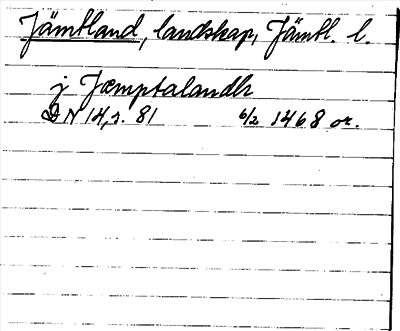 Jämtland, landskap, Jämtl. l.
j Jæmptalandh
DN 14, s. 81 6/2 1468 or.